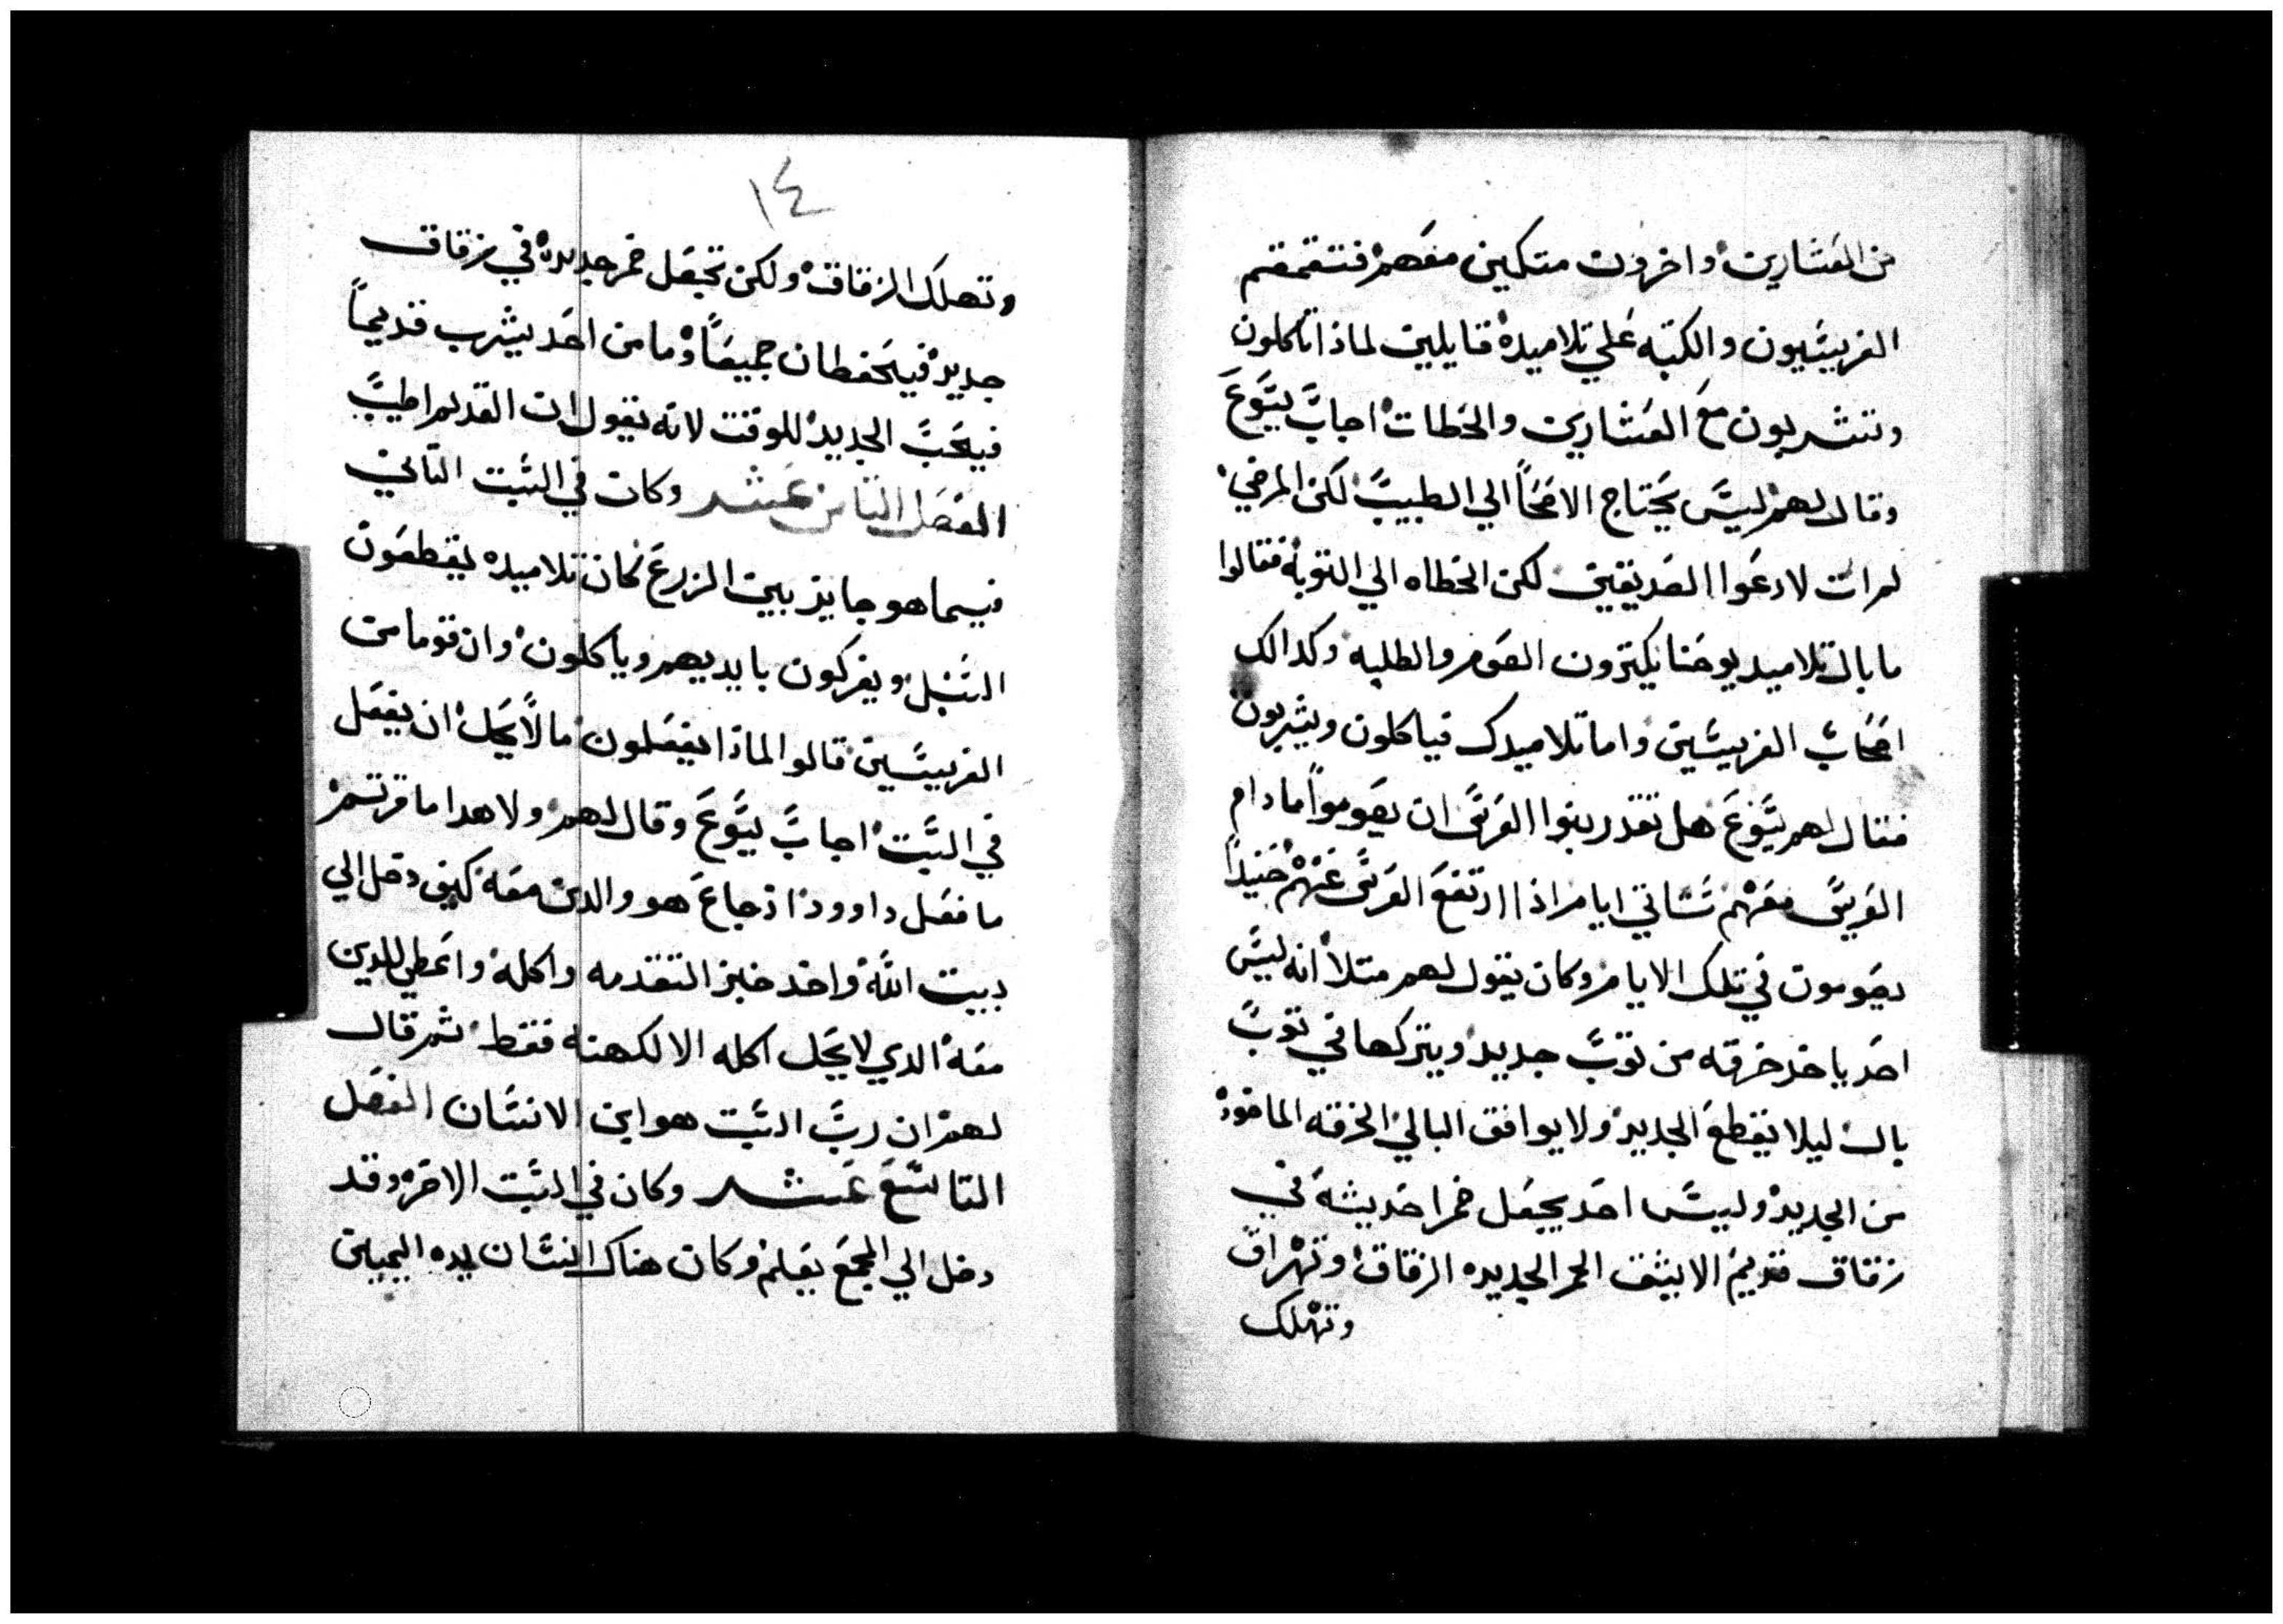 من العشارين واخرون متكين معهم فتقمقم
الفريسيون والكتبه علي تلاميده قايلين لماذا تاكلون
وتشربون مع العشارين والخطات اجاب يسوع
وقال لهم ليس يحتاج الاصحا الي الطبيب لكن المرضي
لمرات لادعوا الصديقين لكن الخطاه الي التوبه فقالوا
ما بال تلاميد يوحنا يكترون الصوم والطلبه وكدالك
اصحاب الفريسين واما تلاميدك فياكلون ويشربون
فقال لهم يسوع هل تقدر بنوا العرس ان يصوموا مادام
العريس معهم ستاتي ايام اذا ارتفع العرس عنهم حنيدا
يصومون في تلك الايام وكان يقول لهم متلا انه ليس
احد ياخد خرقه من توب جديد ويتركها في توب
بال ليلا يقطع الجديد ولا يوافق البالي الخرقه الماخود
من الجديد وليس احد يجعل خمرا حديثه في
زقاق قديم الا يشق الخمر الجديده الزقاق وتهراق
وتهلك
١٤
وتهلك الزقاق ولكن تجعل خمر جديده في زقاق
جديد فيحفطان جميعا وما من احد يشرب قديما
فيحب الجديد للوقت لانه يقول ان القديم اطيب
الفصل التامن عشر وكان في السبت التاني
فيما هو جايز بين الزرع كان تلاميده يقطعون
السبل ويفركون بايديهم وياكلون وان قوما من
الفريسين قالوا لماذا يفعلون ما لا يحل ان يفعل
في السبت اجاب يسوع وقال لهم ولا هدا ما قرتم
ما فعل داوود اذ جاع هو والدين معه كيف دخل الي
بيت الله واخد خبز التقدمه واكله واعطي للدين
معه الدي لا يحل اكله الا لكهنه فقط ثم قال
لهم ان رب السبت هو ابن الانسان الفصل
التاسع عشر وكان في السبت الاخر وقد
دخل الي المجمع يعلم وكان هناك انسان يده اليمين